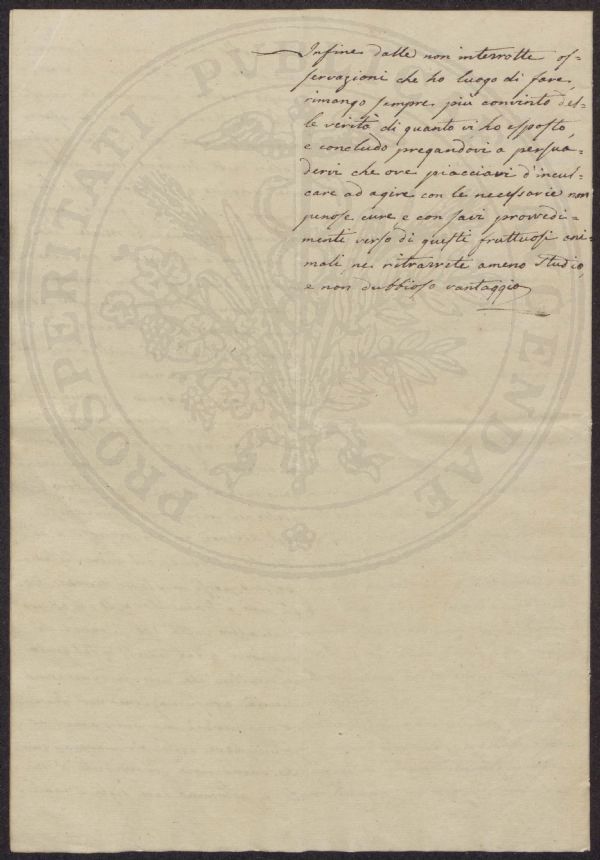 Infine dalle non interrotte os=
servazioni che ho luogo di fare,
rimango sempre più convinto del=
le verità di quanto vi ho esposto,
e concludo pregandovi a persua=
dervi che ove piacciavi d'incul=
care ad agire con le necessarie non
penose cure e con savi provvedi=
menti verso di questi fruttuosi ani=
mali, ne ritrarrete ameno studio,
e non dubbioso vantaggio
PROSPERITATI PVBL
ENDAE